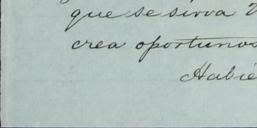 que se sirva
crea oportunos
Habie